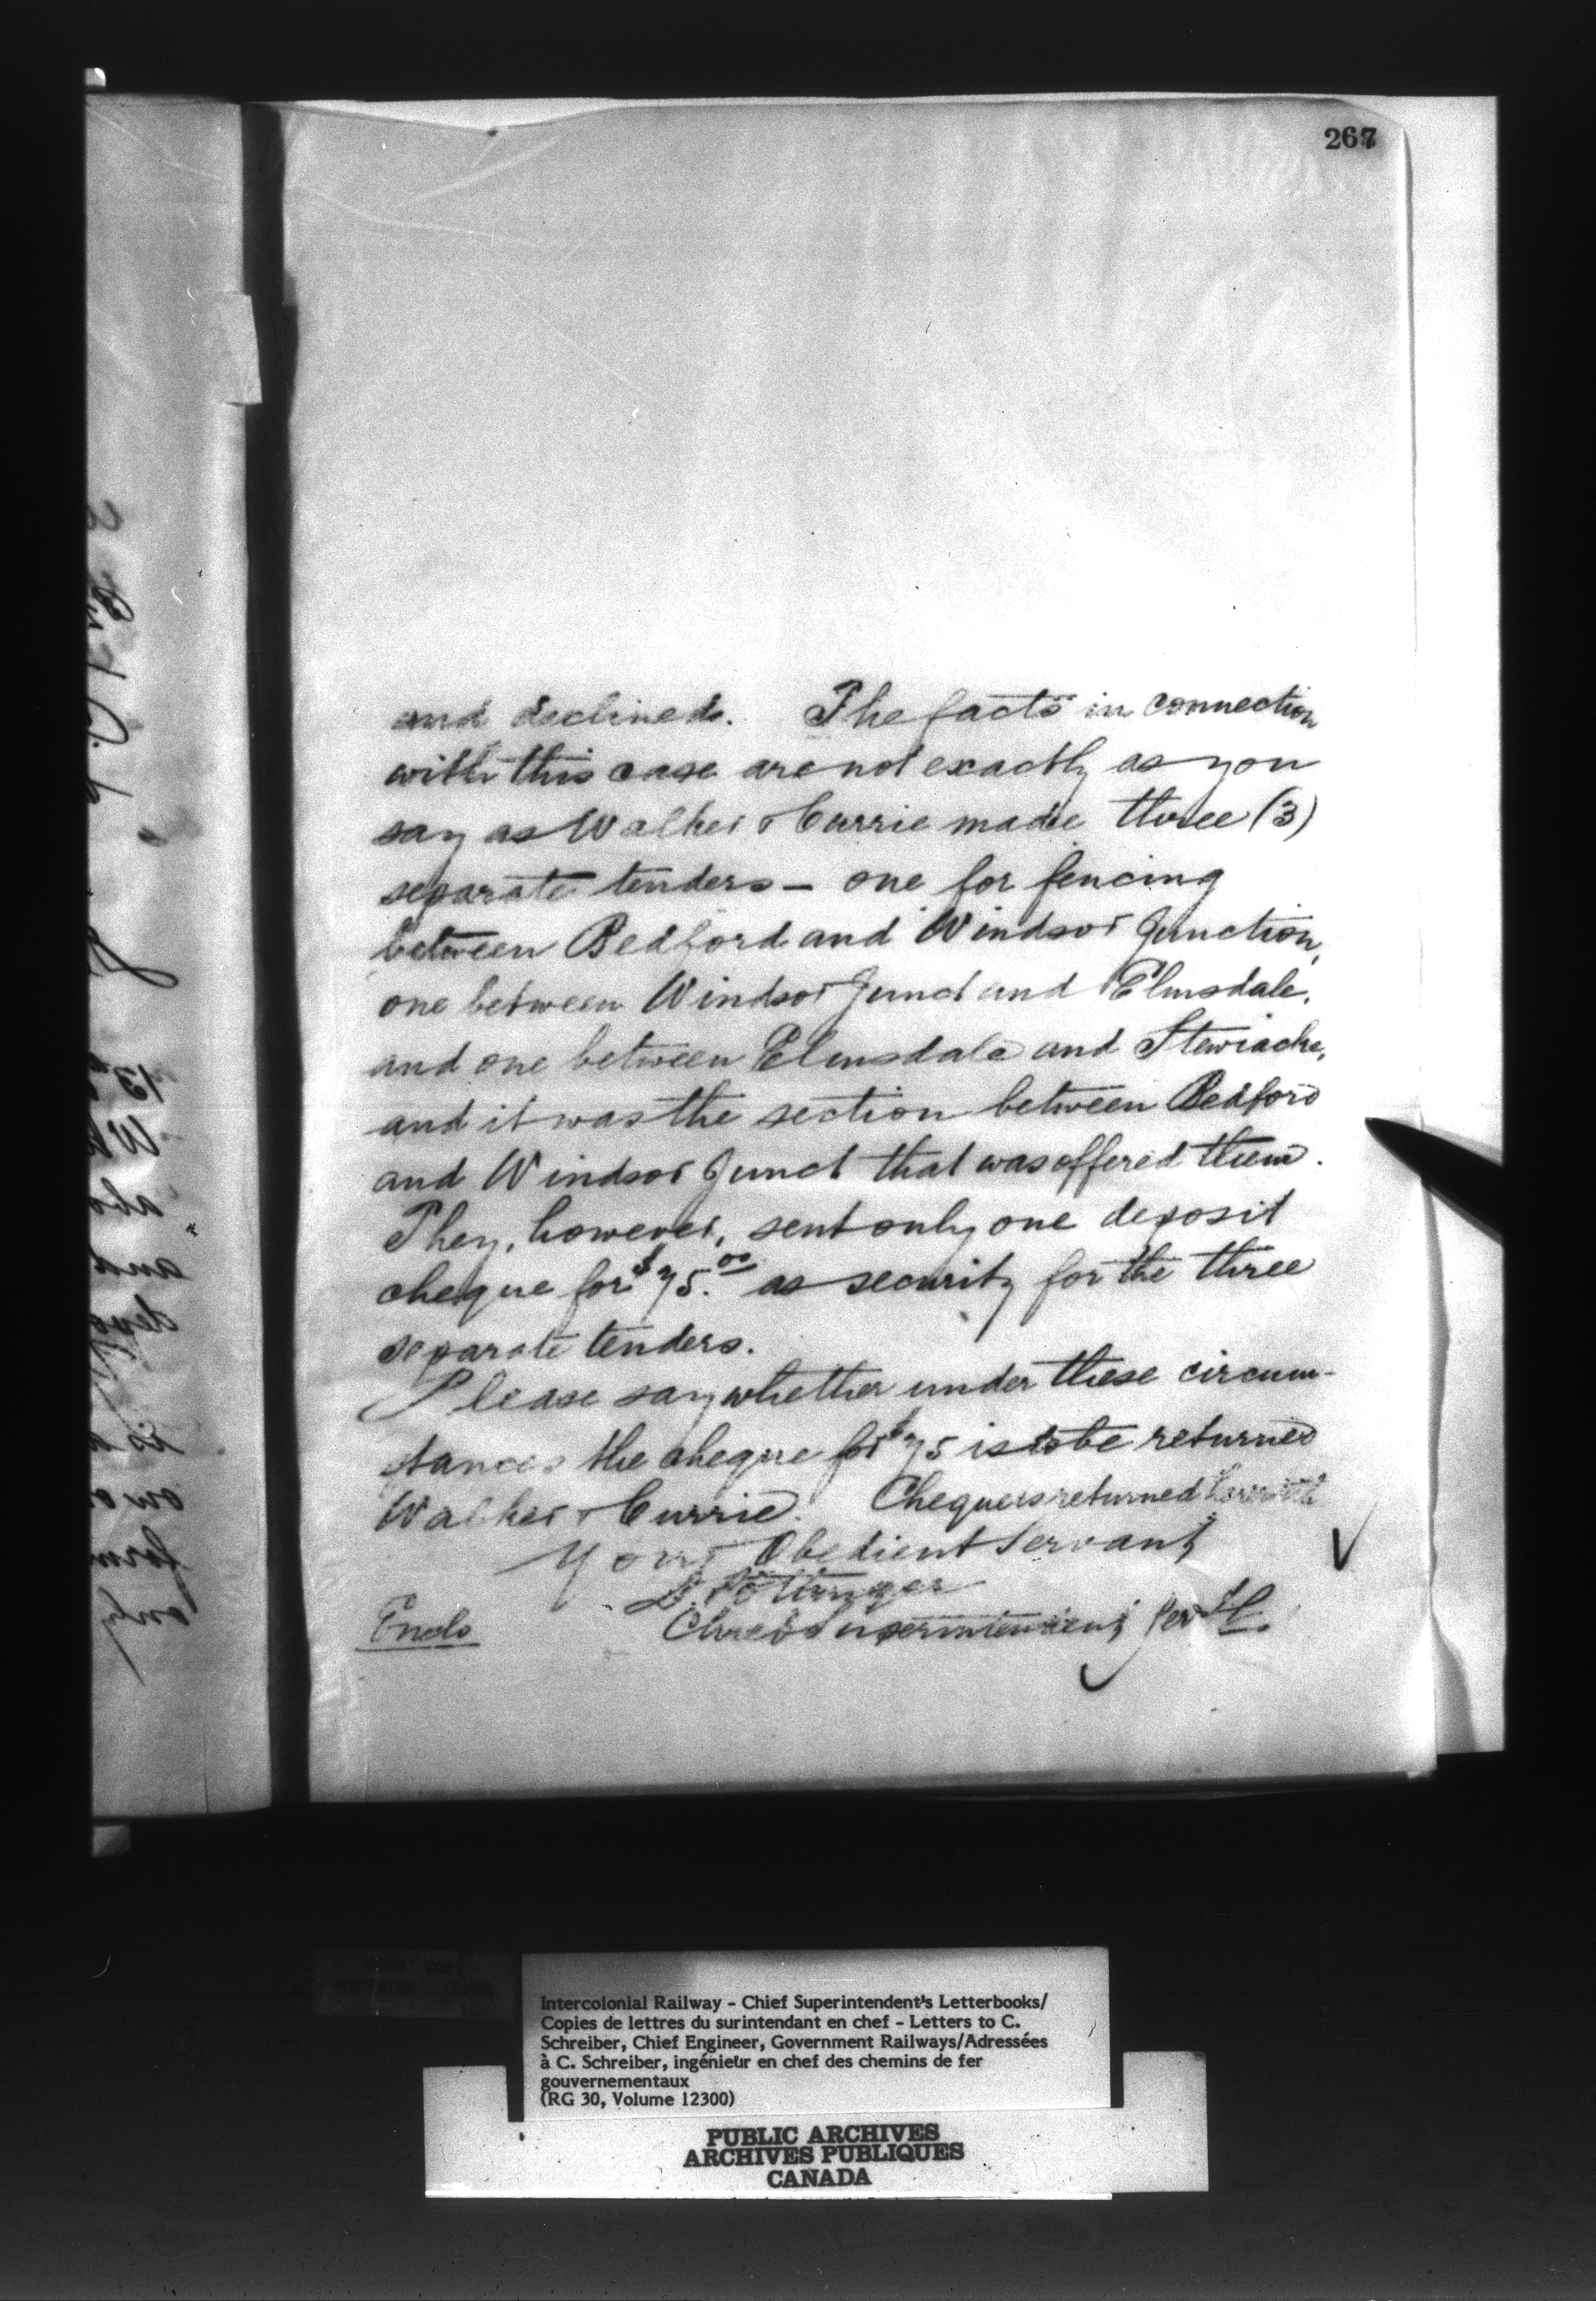 267
and declined. The facts in connection
with this case are not exactly as you
say as Walker & Currie made three (3)
separate tenders — one for fencing
between Bedford and Windsor Junction,
one between Windsor Junct and Elmsdale,
and one between Elmsdale and Stewiacke,
and it was the section between Bedford
and Windsor Junct that was offered them.
They, however, sent only one deposit
cheque for $75.00 as security for the three
separate tenders.
Please say whether under these circum-
stances the cheque for $75 is to be returned
Walker & Currie. Cheques returned herewith
Your Obedient Servant
D. Pottinger
Chief Superintendent per
Encls
Intercolonial Railway - Chief Superintendent's Letterbooks/
Copies de lettres du surintendant en chef - Letters to C.
Schreiber, Chief Engineer, Government Railways/Adressées
à C. Schreiber, ingénieur en chef des chemins de fer
gouvernementaux
(RG 30, Volume 12300)
PUBLIC ARCHIVES
ARCHIVES PUBLIQUES
CANADA